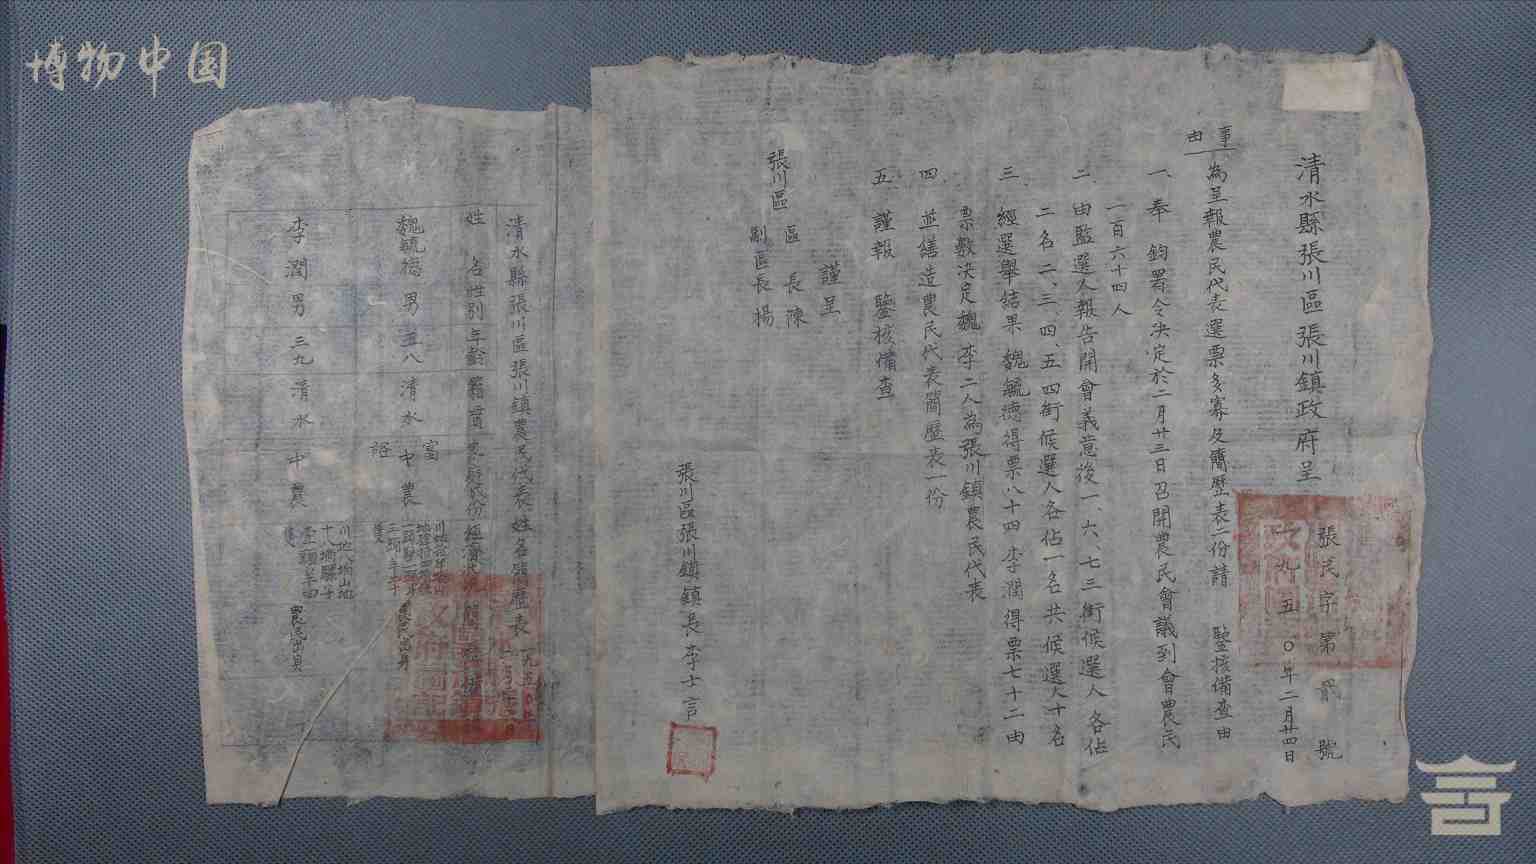 博物中国
清水縣張川區張川鎮政府呈
張民字第貳號
一九五〇年二月廿四日
事由
為呈報農民代表選票多寡及簡歷表一份請 鑒核備查由
一、奉 鈞署令決定於二月廿三日召開農民會議到會農民
一百六十四人
二、由監選人報告開會義意後一、六、七三街候選人各佔
二名二、三、四、五四街候選人各佔一名共候選人十名
三、經選舉結果魏毓德得票八十四李潤得票七十二由
票數決定魏李二人為張川鎮農民代表
四、並繕造農民代表簡歷表一份
五、謹報 鑒核備查
謹呈
張川區 區長陳
副區長楊
張川區張川鎮鎮長李士言
清水縣張川區張川鎮農民代表姓名簡歷表 一九五〇年
姓名 性別 年齡 籍貫 家庭成份 經濟
魏毓德 男 五八 清水 富裕中農 農民出身
李潤 男 三九 清水 中農 農民出身